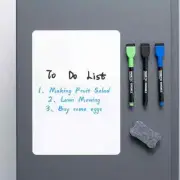 To Do List
1、Making Fruit Salad
2、Lawn Mowing
3、Buy some eggs